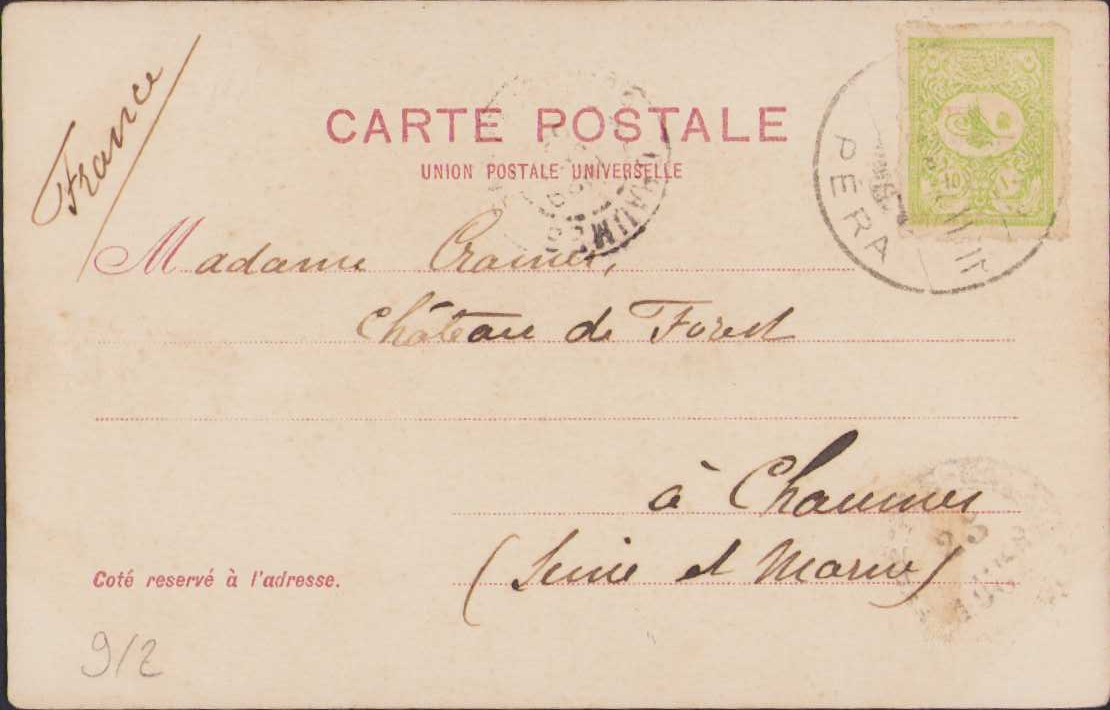 France
CARTE POSTALE
UNION POSTALE UNIVERSELLE
PÉRA
10
CHAUMES
Madame Cramer,
Château de Forest
à Chaumes
(Seine et Marne)
Coté reservé à l'adresse.
23
9/2